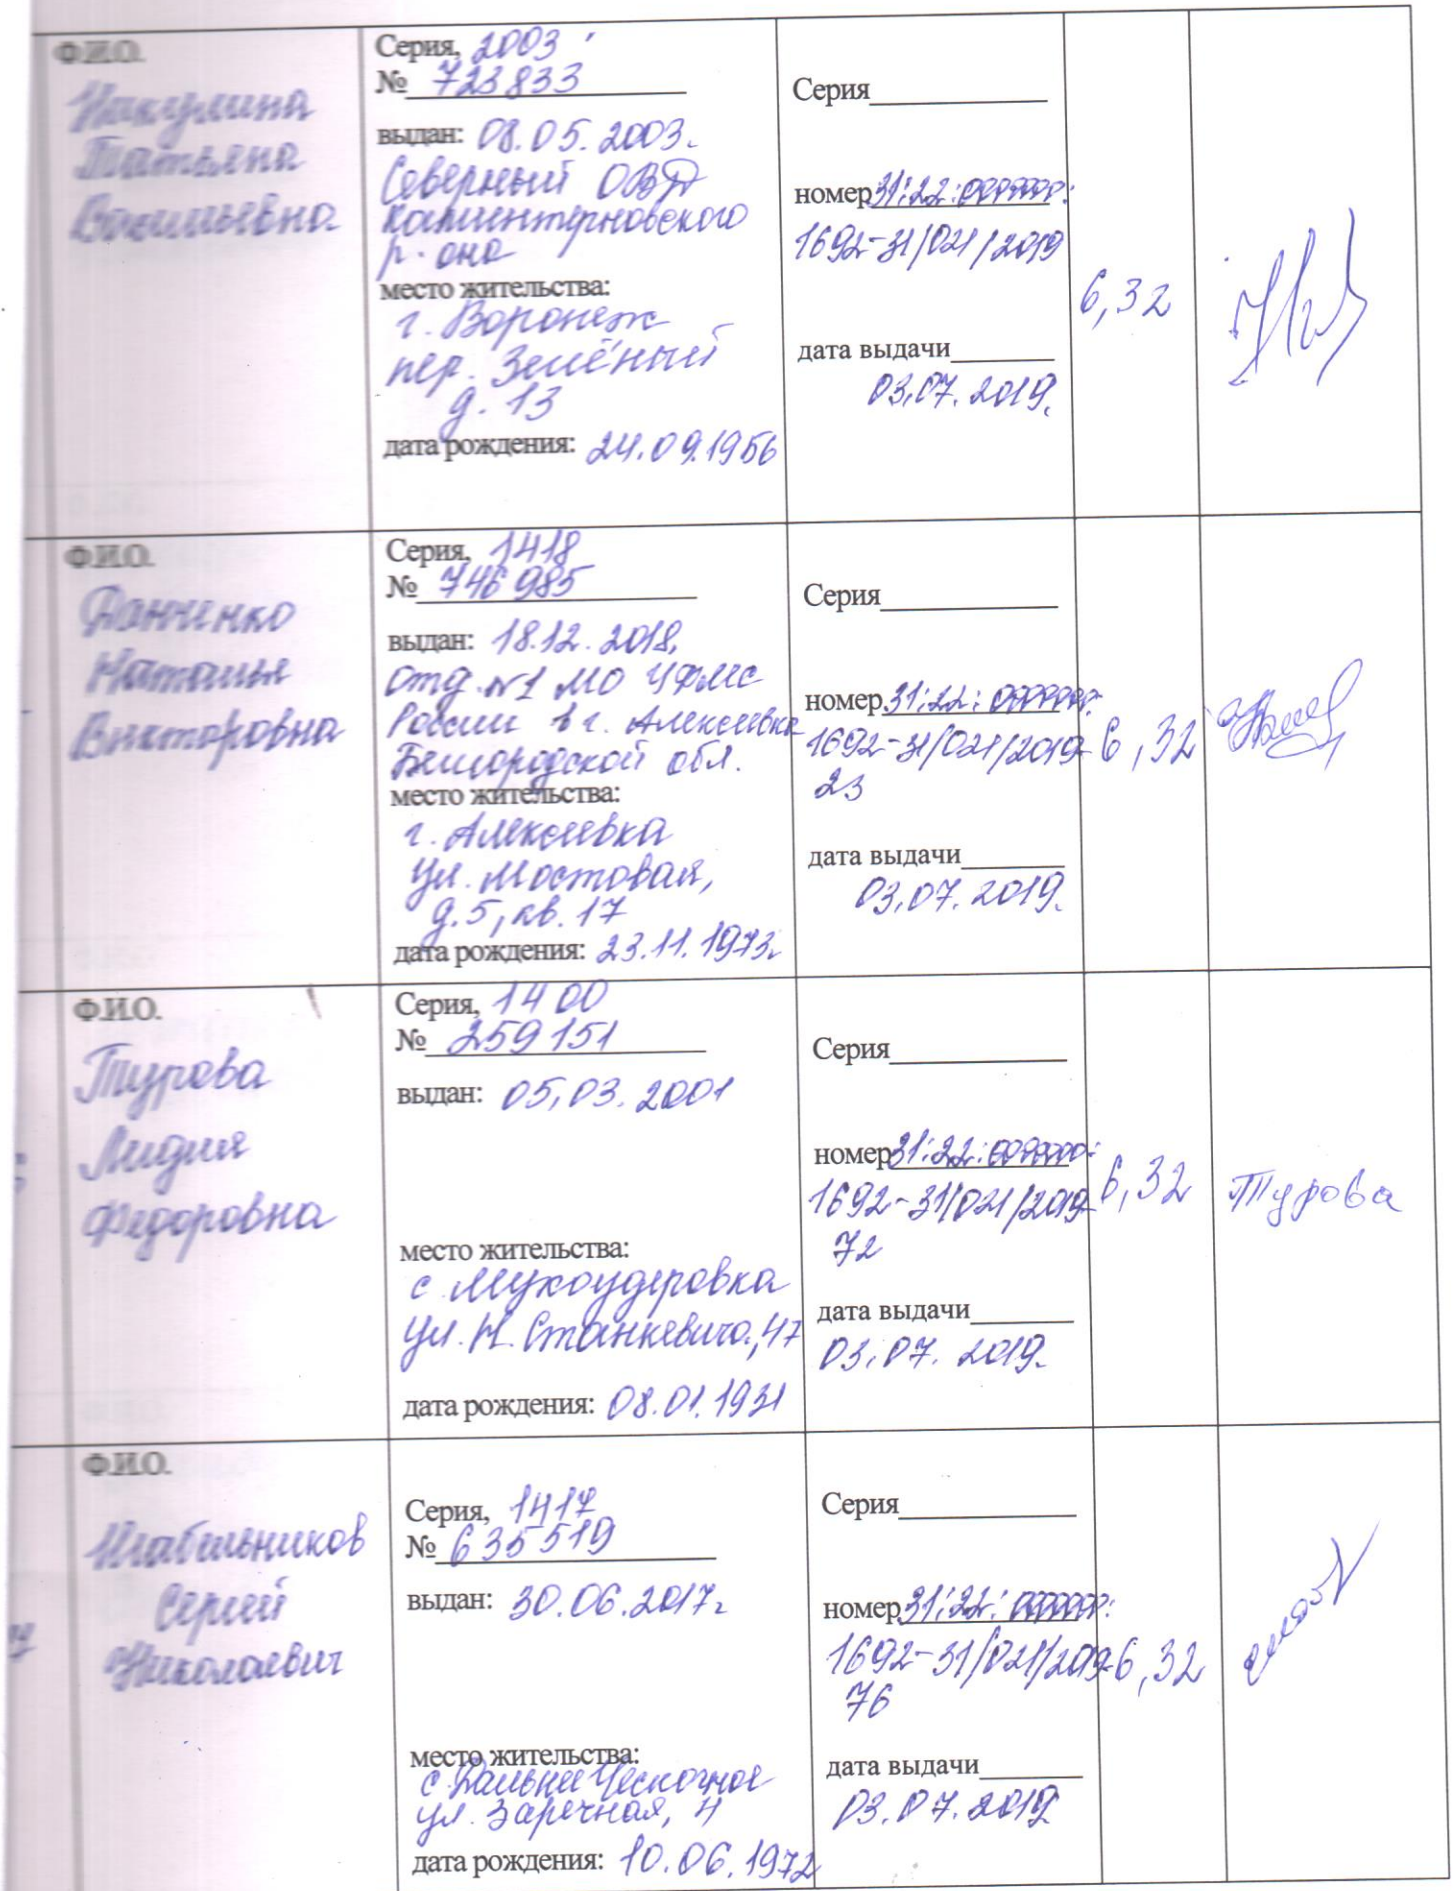 Ф.И.О.
Никулина
Татьяна
Васильевна
Серия, 2003
№ 723833
выдан: 08.05.2003г.
Северный ОВД
Коминтерновского
р-она
место жительства:
г. Воронеж
пер. Зелёный
д. 13
дата рождения: 24.09.1956
Серия
номер 31:22:0000000:
1692-31/021/2019
дата выдачи
03.07.2019г.
6,32
Ф.И.О.
Данченко
Наталья
Викторовна
Серия, 1418
№ 746985
выдан: 18.12.2018,
Отд. №1 МО УФМС
России в г. Алексеевка
Белгородской обл.
место жительства:
г. Алексеевка
ул. Мостовая,
д.5, кв. 17
дата рождения: 23.11.1973г
Серия
номер 31:22:0000000:
1692-31/021/2019-
23
дата выдачи
03.07.2019г.
6,32
Ф.И.О.
Турова
Лидия
Федоровна
Серия, 1400
№ 259151
выдан: 05.03.2001
место жительства:
с Мухоудеровка
ул. Н. Станкевича, 47
дата рождения: 08.01.1931
Серия
номер 31:22:0000000:
1692-31/021/2019-
72
дата выдачи
03.07.2019г.
6,32
Турова
Ф.И.О.
Шабельников
Сергей
Николаевич
Серия, 1417
№ 635519
выдан: 30.06.2017г
место жительства:
с. Дальнее Чесночное
ул. Заречная, 4
дата рождения: 10.06.1972
Серия
номер 31:22:0000000:
1692-31/021/2019-
76
дата выдачи
03.07.2019
6,32